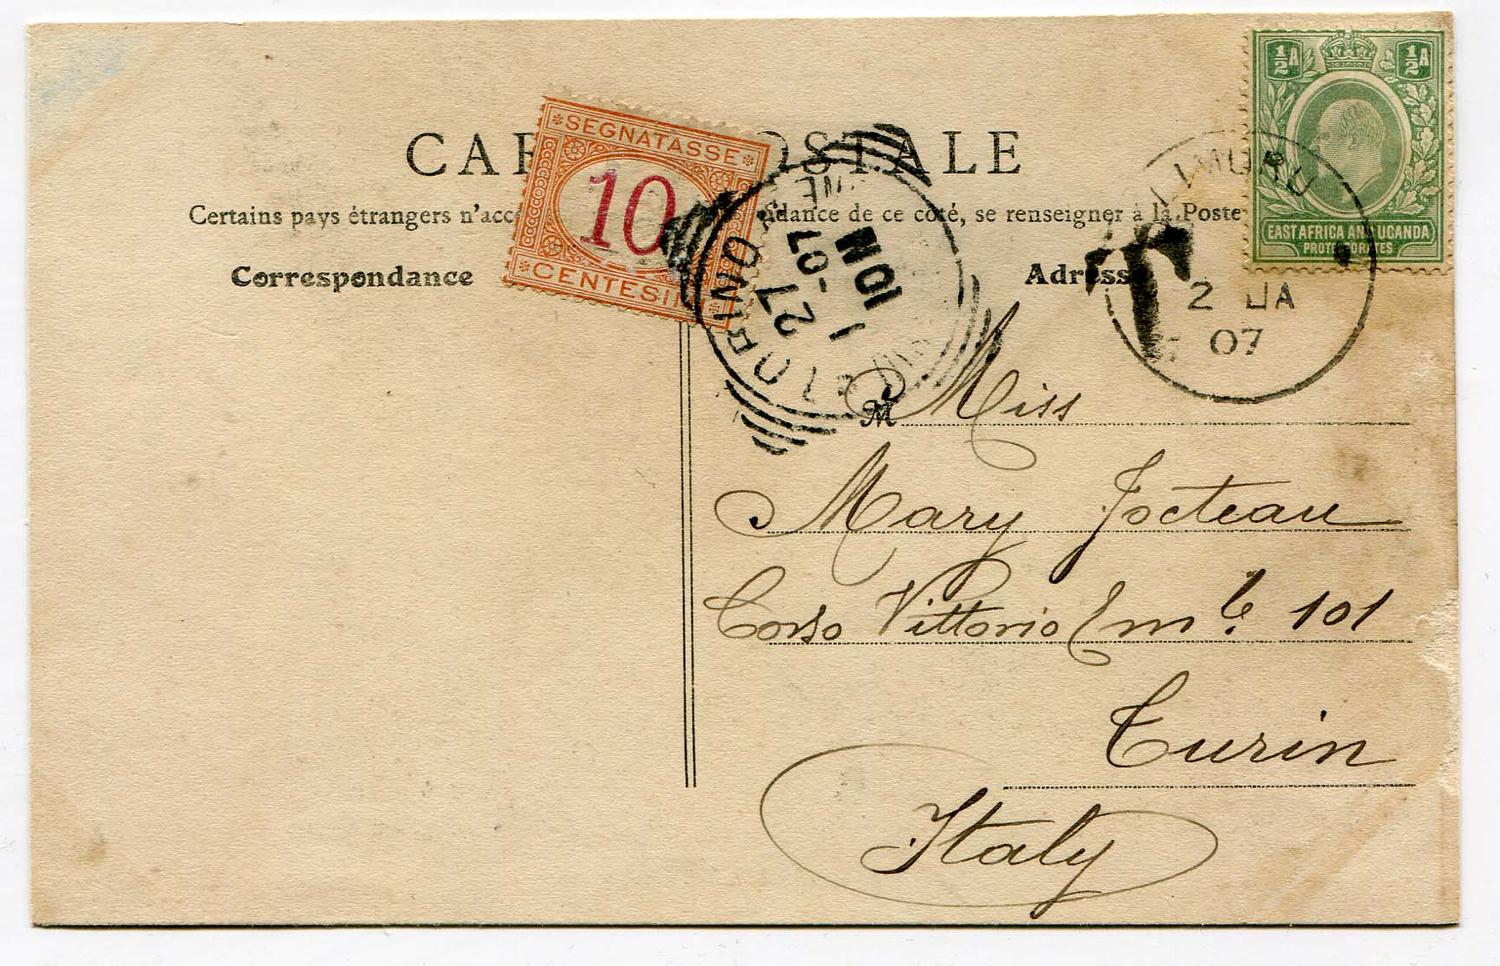 CARTE POSTALE
Certains pays étrangers n'acc dance de ce coté, se renseigner à la Poste
Correspondance
Adresse
SEGNATASSE
10
CENTESIMI
TORINO
27
1 -07
10M
½A ½A
EAST AFRICA AND UGANDA
PROTECTORATES
LIMORU
T
2 JA
07
M Miss
Mary Jocteau
Corso Vittorio Em.le 101
Turin
Italy